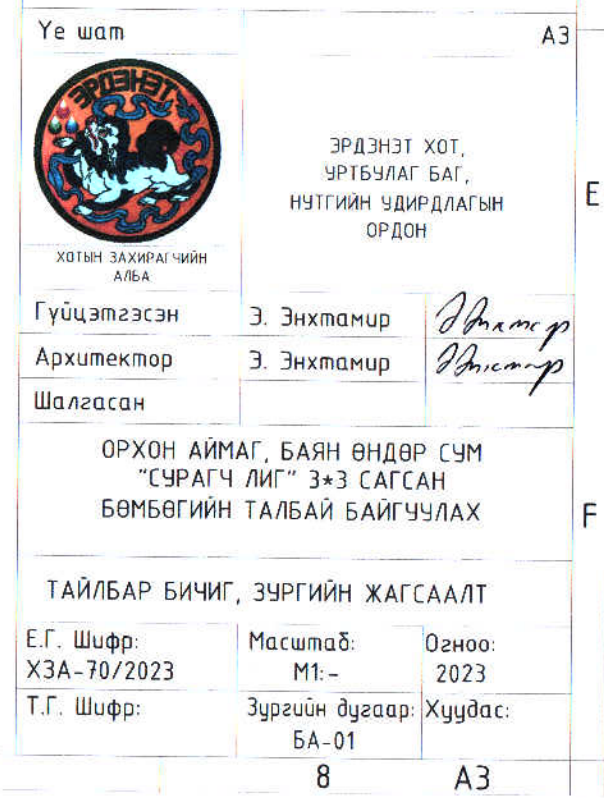 Үе шат
А3
ЭРДЭНЭТ
ЭРДЭНЭТ ХОТ,
УРТБУЛАГ БАГ,
НУТГИЙН УДИРДЛАГЫН
ОРДОН
E
ХОТЫН ЗАХИРАГЧИЙН
АЛБА
Гүйцэтгэсэн
Э. Энхтамир
Архитектор
Э. Энхтамир
Шалгасан
ОРХОН АЙМАГ, БАЯН ӨНДӨР СУМ
"СУРАГЧ ЛИГ" 3*3 САГСАН
БӨМБӨГИЙН ТАЛБАЙ БАЙГУУЛАХ
F
ТАЙЛБАР БИЧИГ, ЗУРГИЙН ЖАГСААЛТ
Е.Г. Шифр:
ХЗА-70/2023
Масштаб:
М1:-
Огноо:
2023
Т.Г. Шифр:
Зургийн дугаар:
БА-01
Хуудас:
8
А3